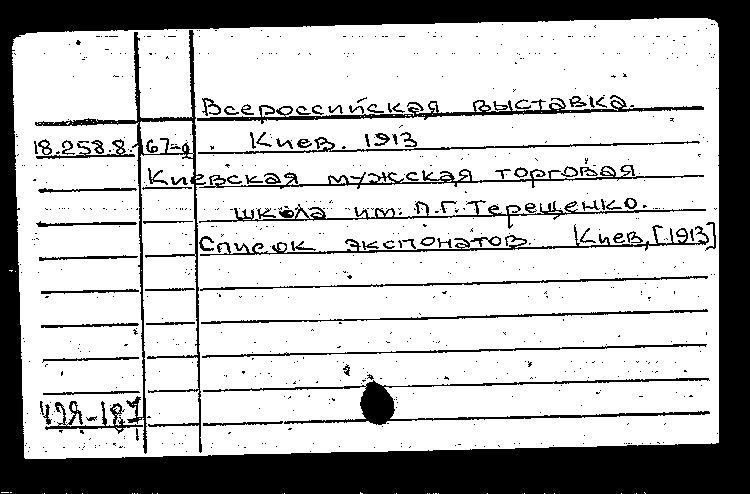 Всероссийская выставка.
18.258.8.167-д. Киев. 1913
Киевская мужская торговая
школа им. П.Г. Терещенко.
Список экспонатов. Киев, [1913]